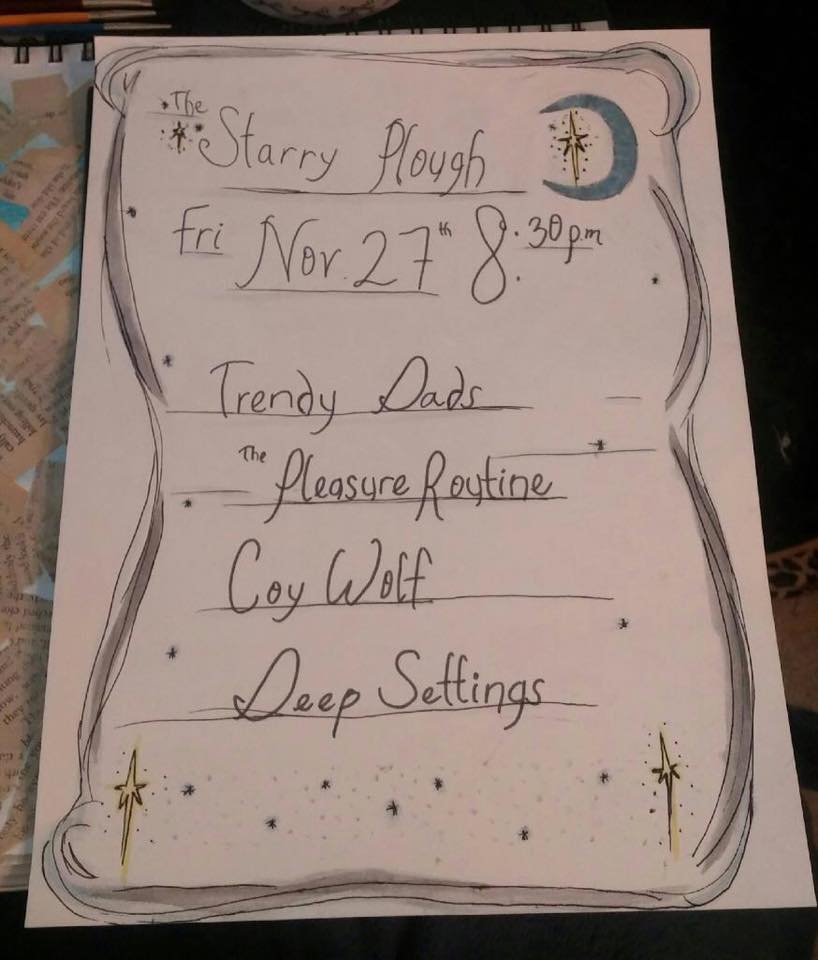 The
Starry Plough
Fri Nov. 27th 8:30pm
Trendy Dads
The Pleasure Routine
Coy Wolf
Deep Settings